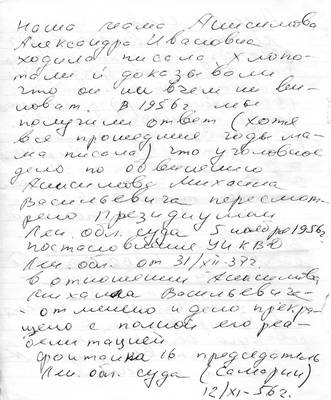 Наша мама Анисимова
Александра Ивановна
ходила писала хлопо-
тали и доказывали
что он ни в чем не ви-
новат. В 1956г. мы
получили ответ (хотя
все прошедшие годы ма-
ма писала) что уголовное
дело по обвинению
Анисимова Михаила
Васильевича пересмот-
рено Президиумом
Лен. обл. суда 5 ноября 1956г.
постановление УНКВД
Лен. обл. от 31/XII-37г.
в отношении Анисимова
Михаила Васильевича-
- отменено и дело прекра-
щено с полной его реа-
билитацией
Фонтанка 16 председатель
Лен. обл. суда (Самарин)
12/XI-56г.